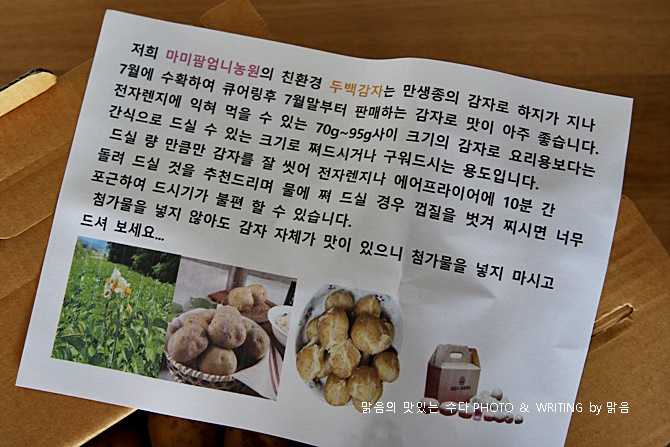 저희 마미팜엄니농원의 친환경 두백감자는 만생종의 감자로 하지가 지나
7월에 수확하여 큐어링후 7월말부터 판매하는 감자로 맛이 아주 좋습니다.
전자렌지에 익혀 먹을 수 있는 70g~95g사이 크기의 감자로 요리용보다는
간식으로 드실 수 있는 크기로 쪄드시거나 구워드시는 용도입니다.
드실 량 만큼만 감자를 잘 씻어 전자렌지나 에어프라이어에 10분 간
돌려 드실 것을 추천드리며 물에 쪄 드실 경우 껍질을 벗겨 찌시면 너무
포근하여 드시기가 불편 할 수 있습니다.
첨가물을 넣지 않아도 감자 자체가 맛이 있으니 첨가물을 넣지 마시고
드셔 보세요...
맑음의 맛있는 수다 PHOTO & WRITING by 맑음